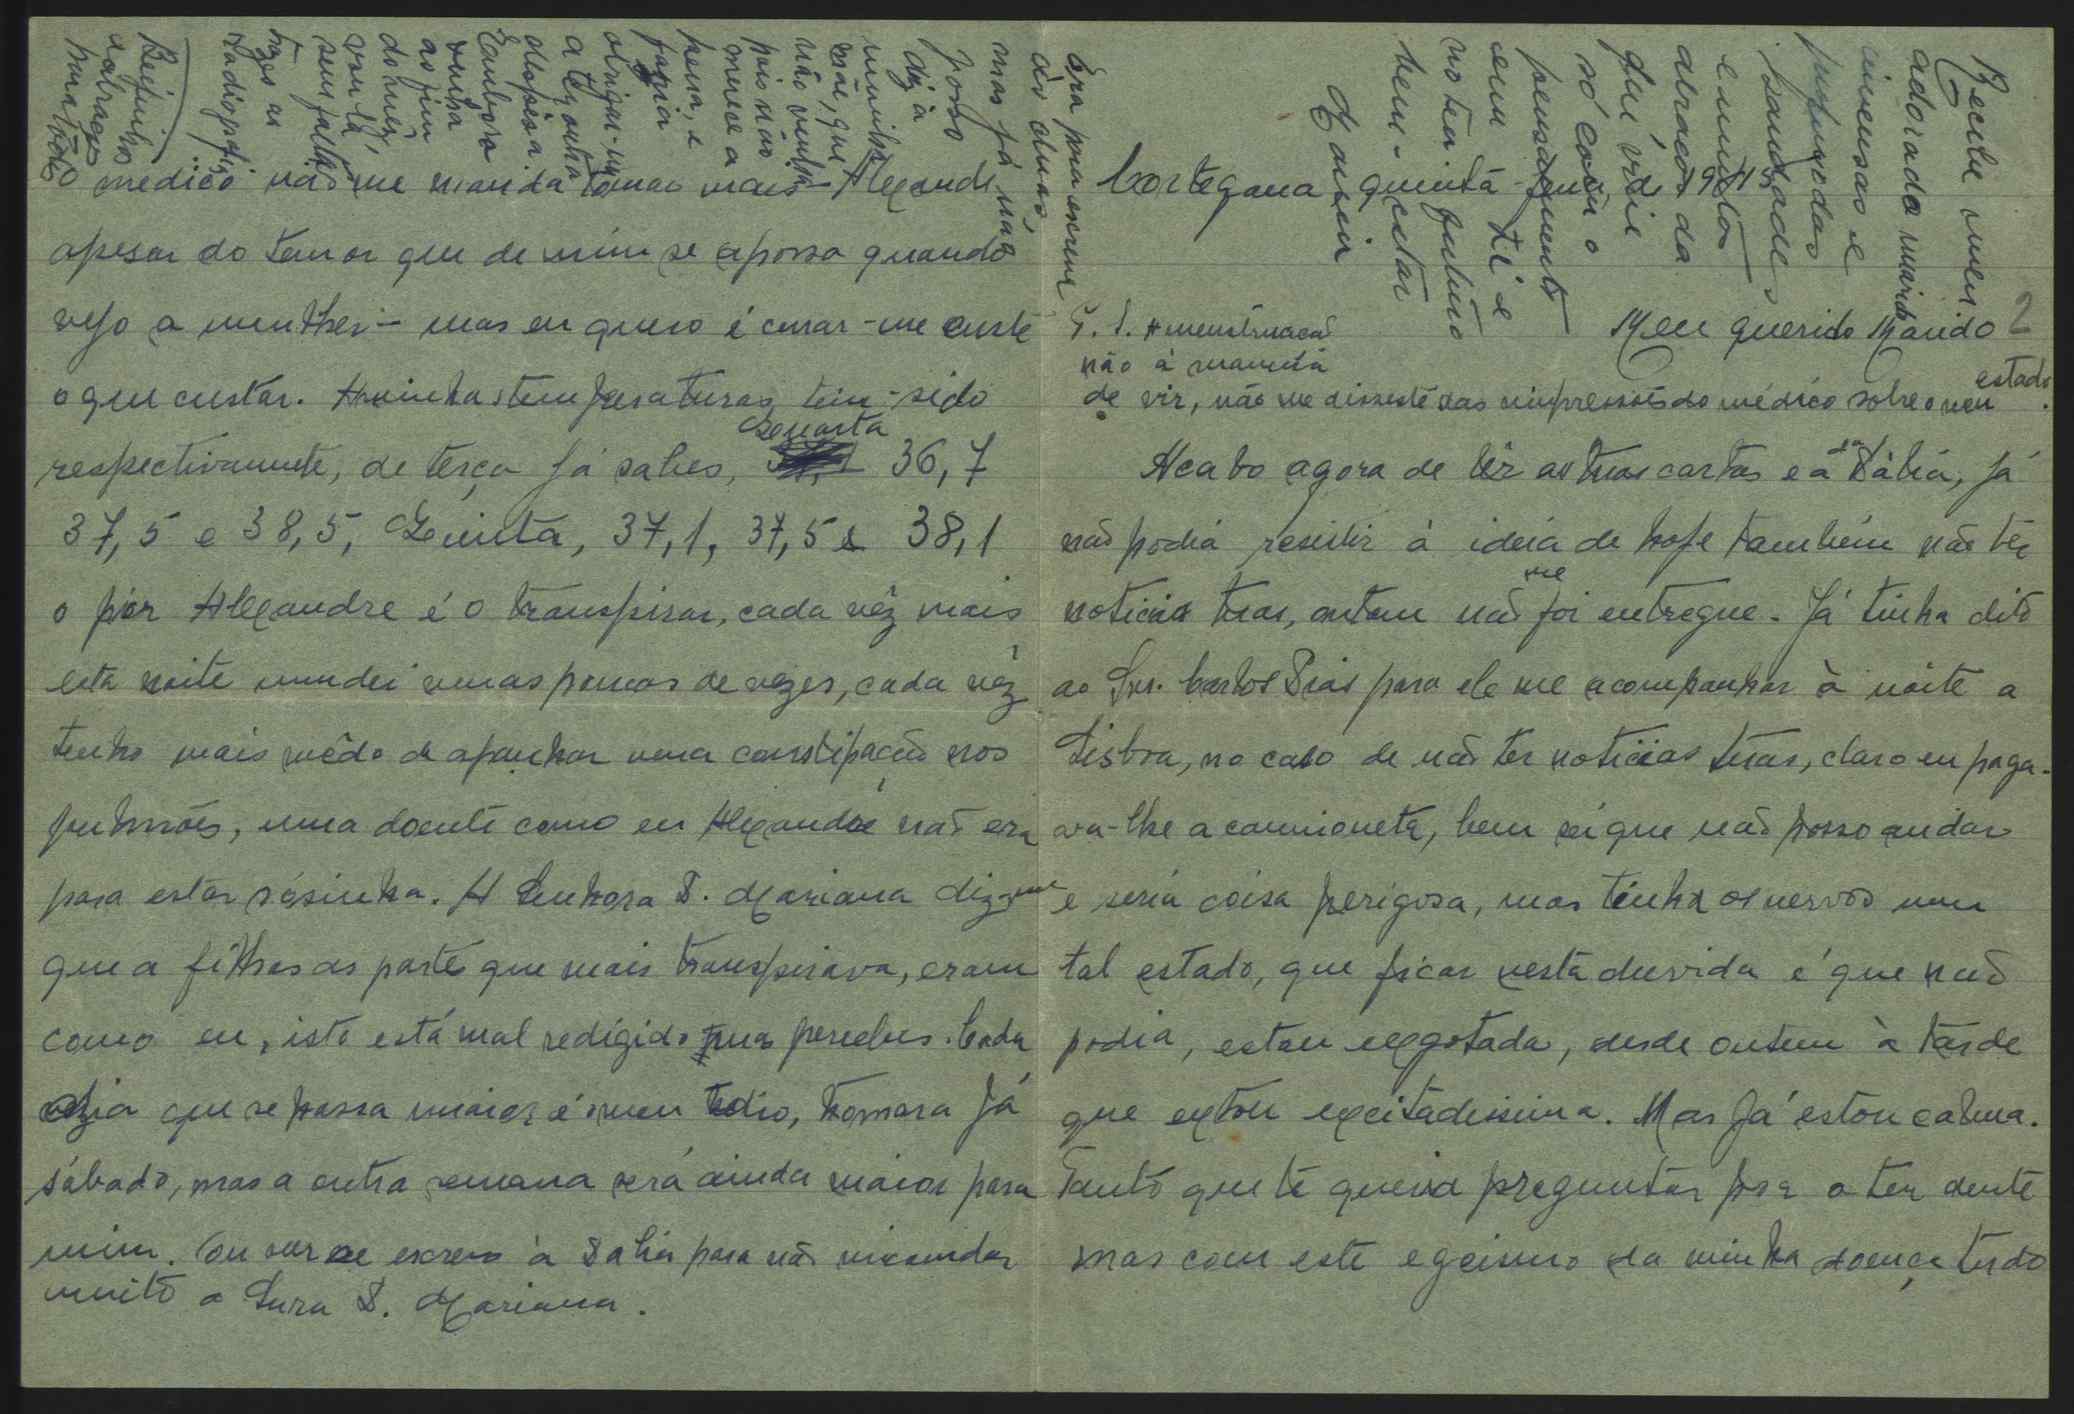 Cortegana quinta-feira 1941
Meu querido Marido 2
P. S. A menstruação
não à maneira
de vir, não me disseste das impressões do médico sobre o meu estado.
Acabo agora de lêr as tuas cartas e a da Dália, já
não podia resistir á ideia de hoje também não têr
noticias tuas, ontem não me foi entregue. Já tinha dito
ao Snr. Carlos Dias para ele me acompanhar à noite a
Lisboa, no caso de não ter noticias tuas, claro eu paga-
va-lhe a camioneta, bem sei que não posso andar
e seria coisa perigosa, mas tinha os nervos num
tal estado, que ficar nesta duvida é que não
podia, estou exgotada, desde ontem à tarde
que estou excitadissima. Mas já estou calma.
Tanto que te queria preguntar por o teu dente
mas com este egoismo da minha doença tudo
O medico não me manda tomar mais Alexandre
apesar do temor que de mim se apossa quando
vejo a mulher - mas eu quero é curar-me custe
o que custar. As minhas temperaturas têm-sido
respectivamente, de terça já sabes, Quarta 36,7
37,5 e 38,5, Quinta, 37,1, 37,5 e 38,1
o pior Alexandre é o transpirar, cada vêz mais
esta noite mudei umas poucas de vezes, cada vêz
tenho mais mêdo de apanhar uma constipação nos
pulmões, uma doente como eu Alexandre não era
para estar sósinha. A Senhora D. Mariana diz-me
que a filha as parte que mais transpirava, eram
como eu, isto está mal redigido mas percebes. Cada
dia que se passa maior é o meu tedio, tomara já
sábado, mas a outra semana será ainda maior para
mim. escrevo à Dália para não incomodar
muito a Snra D. Mariana.
Era para escrever
ás alunas,
mas já não
posso
diz à
minha
mãe, que
não venha
pois não
merece a
pena, e
fazia
obrigar-me
a ter outra
despesa.
Embora
venha
ao fim
do mês,
vou lá
sem falta
trazes as
radiografias
Beijinhos
e abraços
para todos
Recebe meu
adorado marido
imensas e
profundas
saudades
e muitos
abraços da
que vive
só com o
pensamento
em ti e
no teu futuro
bem-estar
Maria